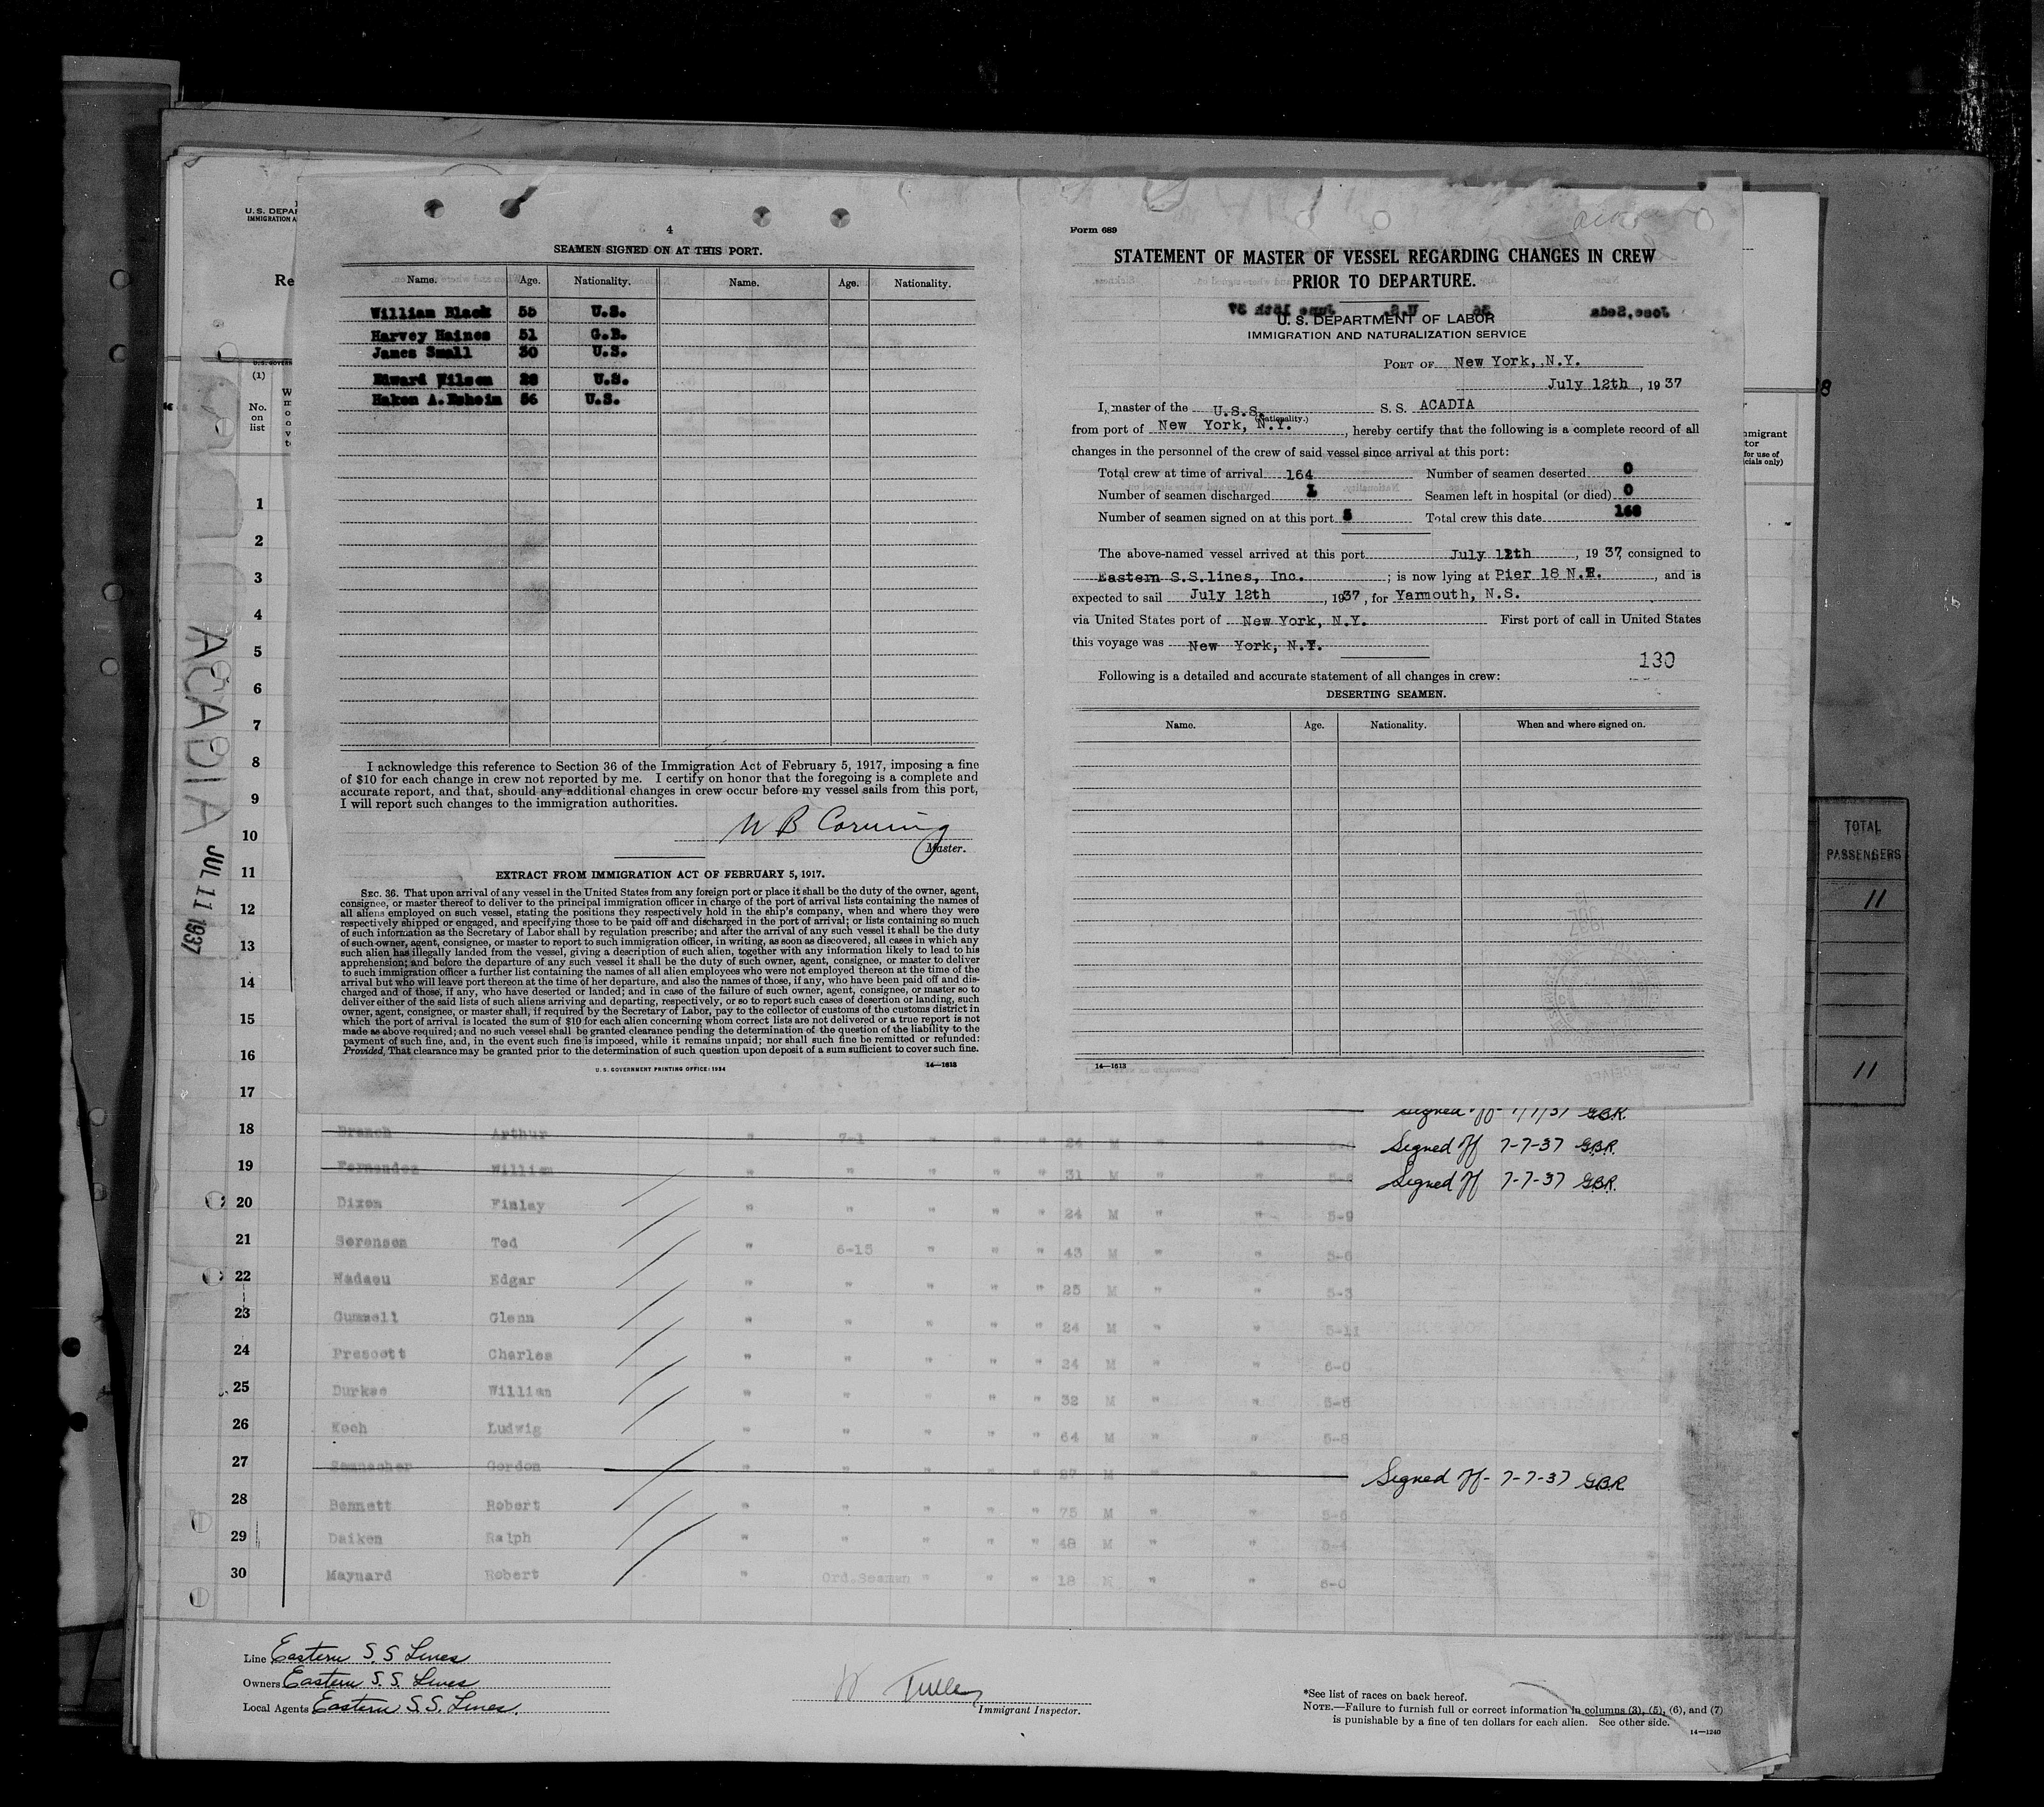 U.S. DEPAR
IMMIGRATION A
Re
(1)
No.
on
list
4
SEAMEN SIGNED ON AT THIS PORT.
Name. Age. Nationality. Name. Age. Nationality.
William Black 55 U.S.
Harvey Haines 51 G.B.
James Small 30 U.S.
Edward Wilson 28 U.S.
Haken A. Esheim 56 U.S.
I acknowledge this reference to Section 36 of the Immigration Act of February 5, 1917, imposing a fine
of $10 for each change in crew not reported by me. I certify on honor that the foregoing is a complete and
accurate report, and that, should any additional changes in crew occur before my vessel sails from this port,
I will report such changes to the immigration authorities.
W B Corning
Master.
EXTRACT FROM IMMIGRATION ACT OF FEBRUARY 5, 1917.
SEC. 36. That upon arrival of any vessel in the United States from any foreign port or place it shall be the duty of the owner, agent,
consignee, or master thereof to deliver to the principal immigration officer in charge of the port of arrival lists containing the names of
all aliens employed on such vessel, stating the positions they respectively hold in the ship's company, when and where they were
respectively shipped or engaged, and specifying those to be paid off and discharged in the port of arrival; or lists containing so much
of such information as the Secretary of Labor shall by regulation prescribe; and after the arrival of any such vessel it shall be the duty
of such owner, agent, consignee, or master to report to such immigration officer, in writing, as soon as discovered, all cases in which any
such alien has illegally landed from the vessel, giving a description of such alien, together with any information likely to lead to his
apprehension; and before the departure of any such vessel it shall be the duty of such owner, agent, consignee, or master to deliver
to such immigration officer a further list containing the names of all alien employees who were not employed thereon at the time of the
arrival but who will leave port thereon at the time of her departure, and also the names of those, if any, who have been paid off and dis-
charged and of those, if any, who have deserted or landed; and in case of the failure of such owner, agent, consignee, or master so to
deliver either of the said lists of such aliens arriving and departing, respectively, or so to report such cases of desertion or landing, such
owner, agent, consignee, or master shall, if required by the Secretary of Labor, pay to the collector of customs of the customs district in
which the port of arrival is located the sum of $10 for each alien concerning whom correct lists are not delivered or a true report is not
made as above required; and no such vessel shall be granted clearance pending the determination of the question of the liability to the
payment of such fine, and, in the event such fine is imposed, while it remains unpaid; nor shall such fine be remitted or refunded:
Provided, That clearance may be granted prior to the determination of such question upon deposit of a sum sufficient to cover such fine.
U.S. GOVERNMENT PRINTING OFFICE: 1934 14—1613
Form 689
STATEMENT OF MASTER OF VESSEL REGARDING CHANGES IN CREW
PRIOR TO DEPARTURE.
U. S. DEPARTMENT OF LABOR
IMMIGRATION AND NATURALIZATION SERVICE
PORT OF New York, N.Y.
July 12th, 1937
I, master of the U.S.S. S. S. ACADIA
(Nationality.)
from port of New York, N.Y., hereby certify that the following is a complete record of all
changes in the personnel of the crew of said vessel since arrival at this port:
Total crew at time of arrival 164 Number of seamen deserted 0
Number of seamen discharged 1 Seamen left in hospital (or died) 0
Number of seamen signed on at this port 5 Total crew this date 168
The above-named vessel arrived at this port July 12th, 1937, consigned to
Eastern S.S.lines, Inc.; is now lying at Pier 18 N.R., and is
expected to sail July 12th, 1937, for Yarmouth, N.S.
via United States port of New York, N.Y. First port of call in United States
this voyage was New York, N.Y.
130
Following is a detailed and accurate statement of all changes in crew:
DESERTING SEAMEN.
Name. Age. Nationality. When and where signed on.
14—1613
ACADIA JUL 11 1937
TOTAL
PASSENGERS
11
11
mmigrant
tor
for use of
cials only)
1
2
3
4
5
6
7
8
9
10
11
12
13
14
15
16
17 Signed off- 7/7/37 GBR.
18 Branch Arthur " 7-1 " " " 24 M " " Signed off 7-7-37 GBR.
19 Fernandez William " " " " " 31 M " " Signed off 7-7-37 GBR.
20 Dixon Finlay " " " " " 24 M " " 5-9
21 Sorenson Ted " 6-15 " " " 43 M " " 5-6
22 Wadaeu Edgar " " " " " 25 M " " 5-3
23 Gummell Glenn " " " " " 24 M " " 5-11
24 Prescott Charles " " " " " 24 M " " 6-0
25 Durkee William " " " " " 32 M " " 5-8
26 Koch Ludwig " " " " " 64 M " " 5-8
27 Gordon " " " " " 27 M Signed off- 7-7-37 GBR
28 Bennett Robert " " " " " 75 M " " 5-6
29 Daiken Ralph " " " " " 48 M " " 5-4
30 Maynard Robert " Ord.Seaman " " " 18 M " " 6-0
Line Eastern S.S Lines
Owners Eastern S.S. Lines
Local Agents Eastern S.S. Lines.
Immigrant Inspector.
*See list of races on back hereof.
NOTE.—Failure to furnish full or correct information in columns (3), (5), (6), and (7)
is punishable by a fine of ten dollars for each alien. See other side.
14—1240